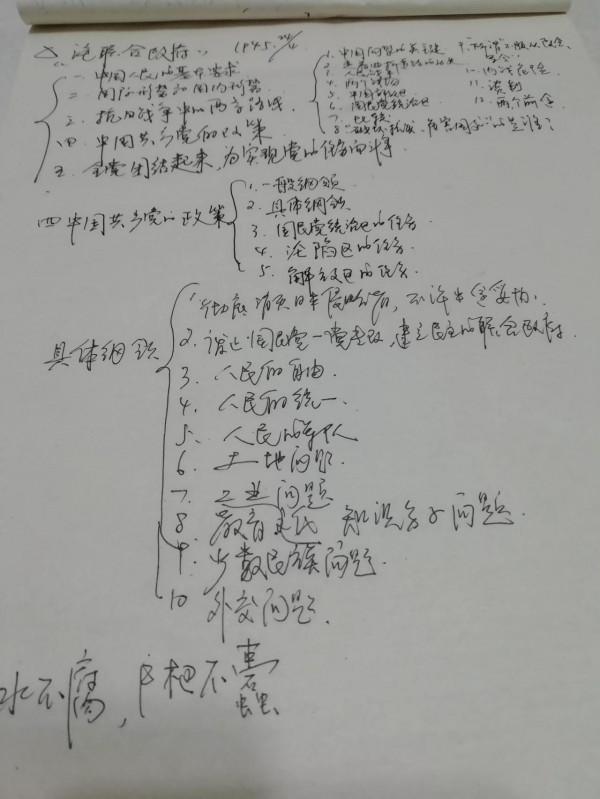 △ "论联合政府" 1945.24/4
一. 中国人民的基本要求
二. 国际形势和国内形势
三. 抗日战争中的两条路线
四. 中国共产党的政策
五. 全党团结起来,为实现党的任务而斗争
1. 中国问题的关键
2. 走着曲折道路的历史
3. 人民战争
4. 两个战场
5. 中国解放区
6. 国民党统治区
7. 比较
8. "破坏抗战、危害国家"的是谁?
9. 所谓"不服从政令、
军令"
10. 内战危险
11. 谈判
12. 两个前途
四 中国共产党的政策
1. 一般纲领
2. 具体纲领
3. 国民党统治区的任务
4. 沦陷区的任务
5. 解放区的任务
具体纲领
1. 彻底消灭日本侵略者,不许中途妥协.
2. 废止国民党一党专政,建立民主的联合政府
3. 人民的自由
4. 人民的统一
5. 人民的军队
6. 土地问题
7. 工业问题
8. 教育文化 知识分子问题.
9. 少数民族问题.
10 外交问题.
水不腐,户枢不蠹